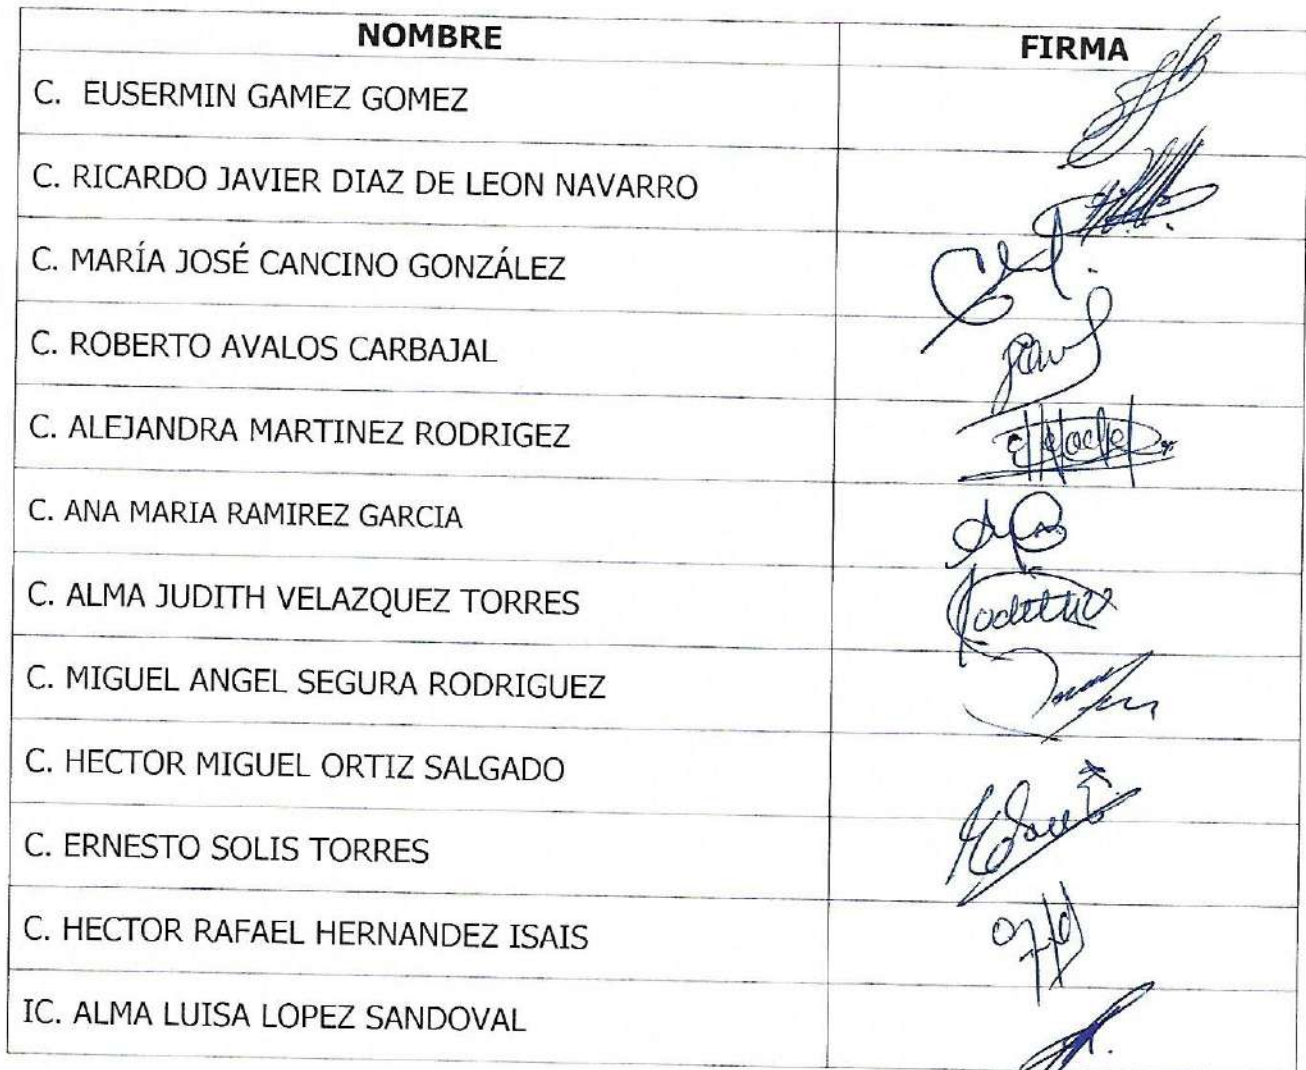 NOMBRE FIRMA
C. EUSERMIN GAMEZ GOMEZ
C. RICARDO JAVIER DIAZ DE LEON NAVARRO
C. MARÍA JOSÉ CANCINO GONZÁLEZ
C. ROBERTO AVALOS CARBAJAL
C. ALEJANDRA MARTINEZ RODRIGEZ
C. ANA MARIA RAMIREZ GARCIA
C. ALMA JUDITH VELAZQUEZ TORRES
C. MIGUEL ANGEL SEGURA RODRIGUEZ
C. HECTOR MIGUEL ORTIZ SALGADO
C. ERNESTO SOLIS TORRES
C. HECTOR RAFAEL HERNANDEZ ISAIS
IC. ALMA LUISA LOPEZ SANDOVAL